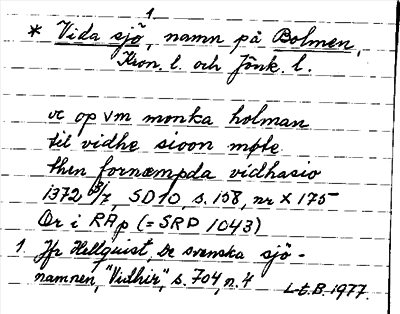 * Vida sjö¹, namn på Bolmen,
Kron. l. och Jönk. l.
vc op vm monka holman
til vidhe sioon møte
then fornæmpda vidhasio
1372 8/7, SD10, s. 158, nr X 175
Or i RAp (= SRP 1043)
1. Jfr Hellquist, De svenska sjö-
namnen, "Vidhir", s. 704, n. 4
L-E.B. 1977.